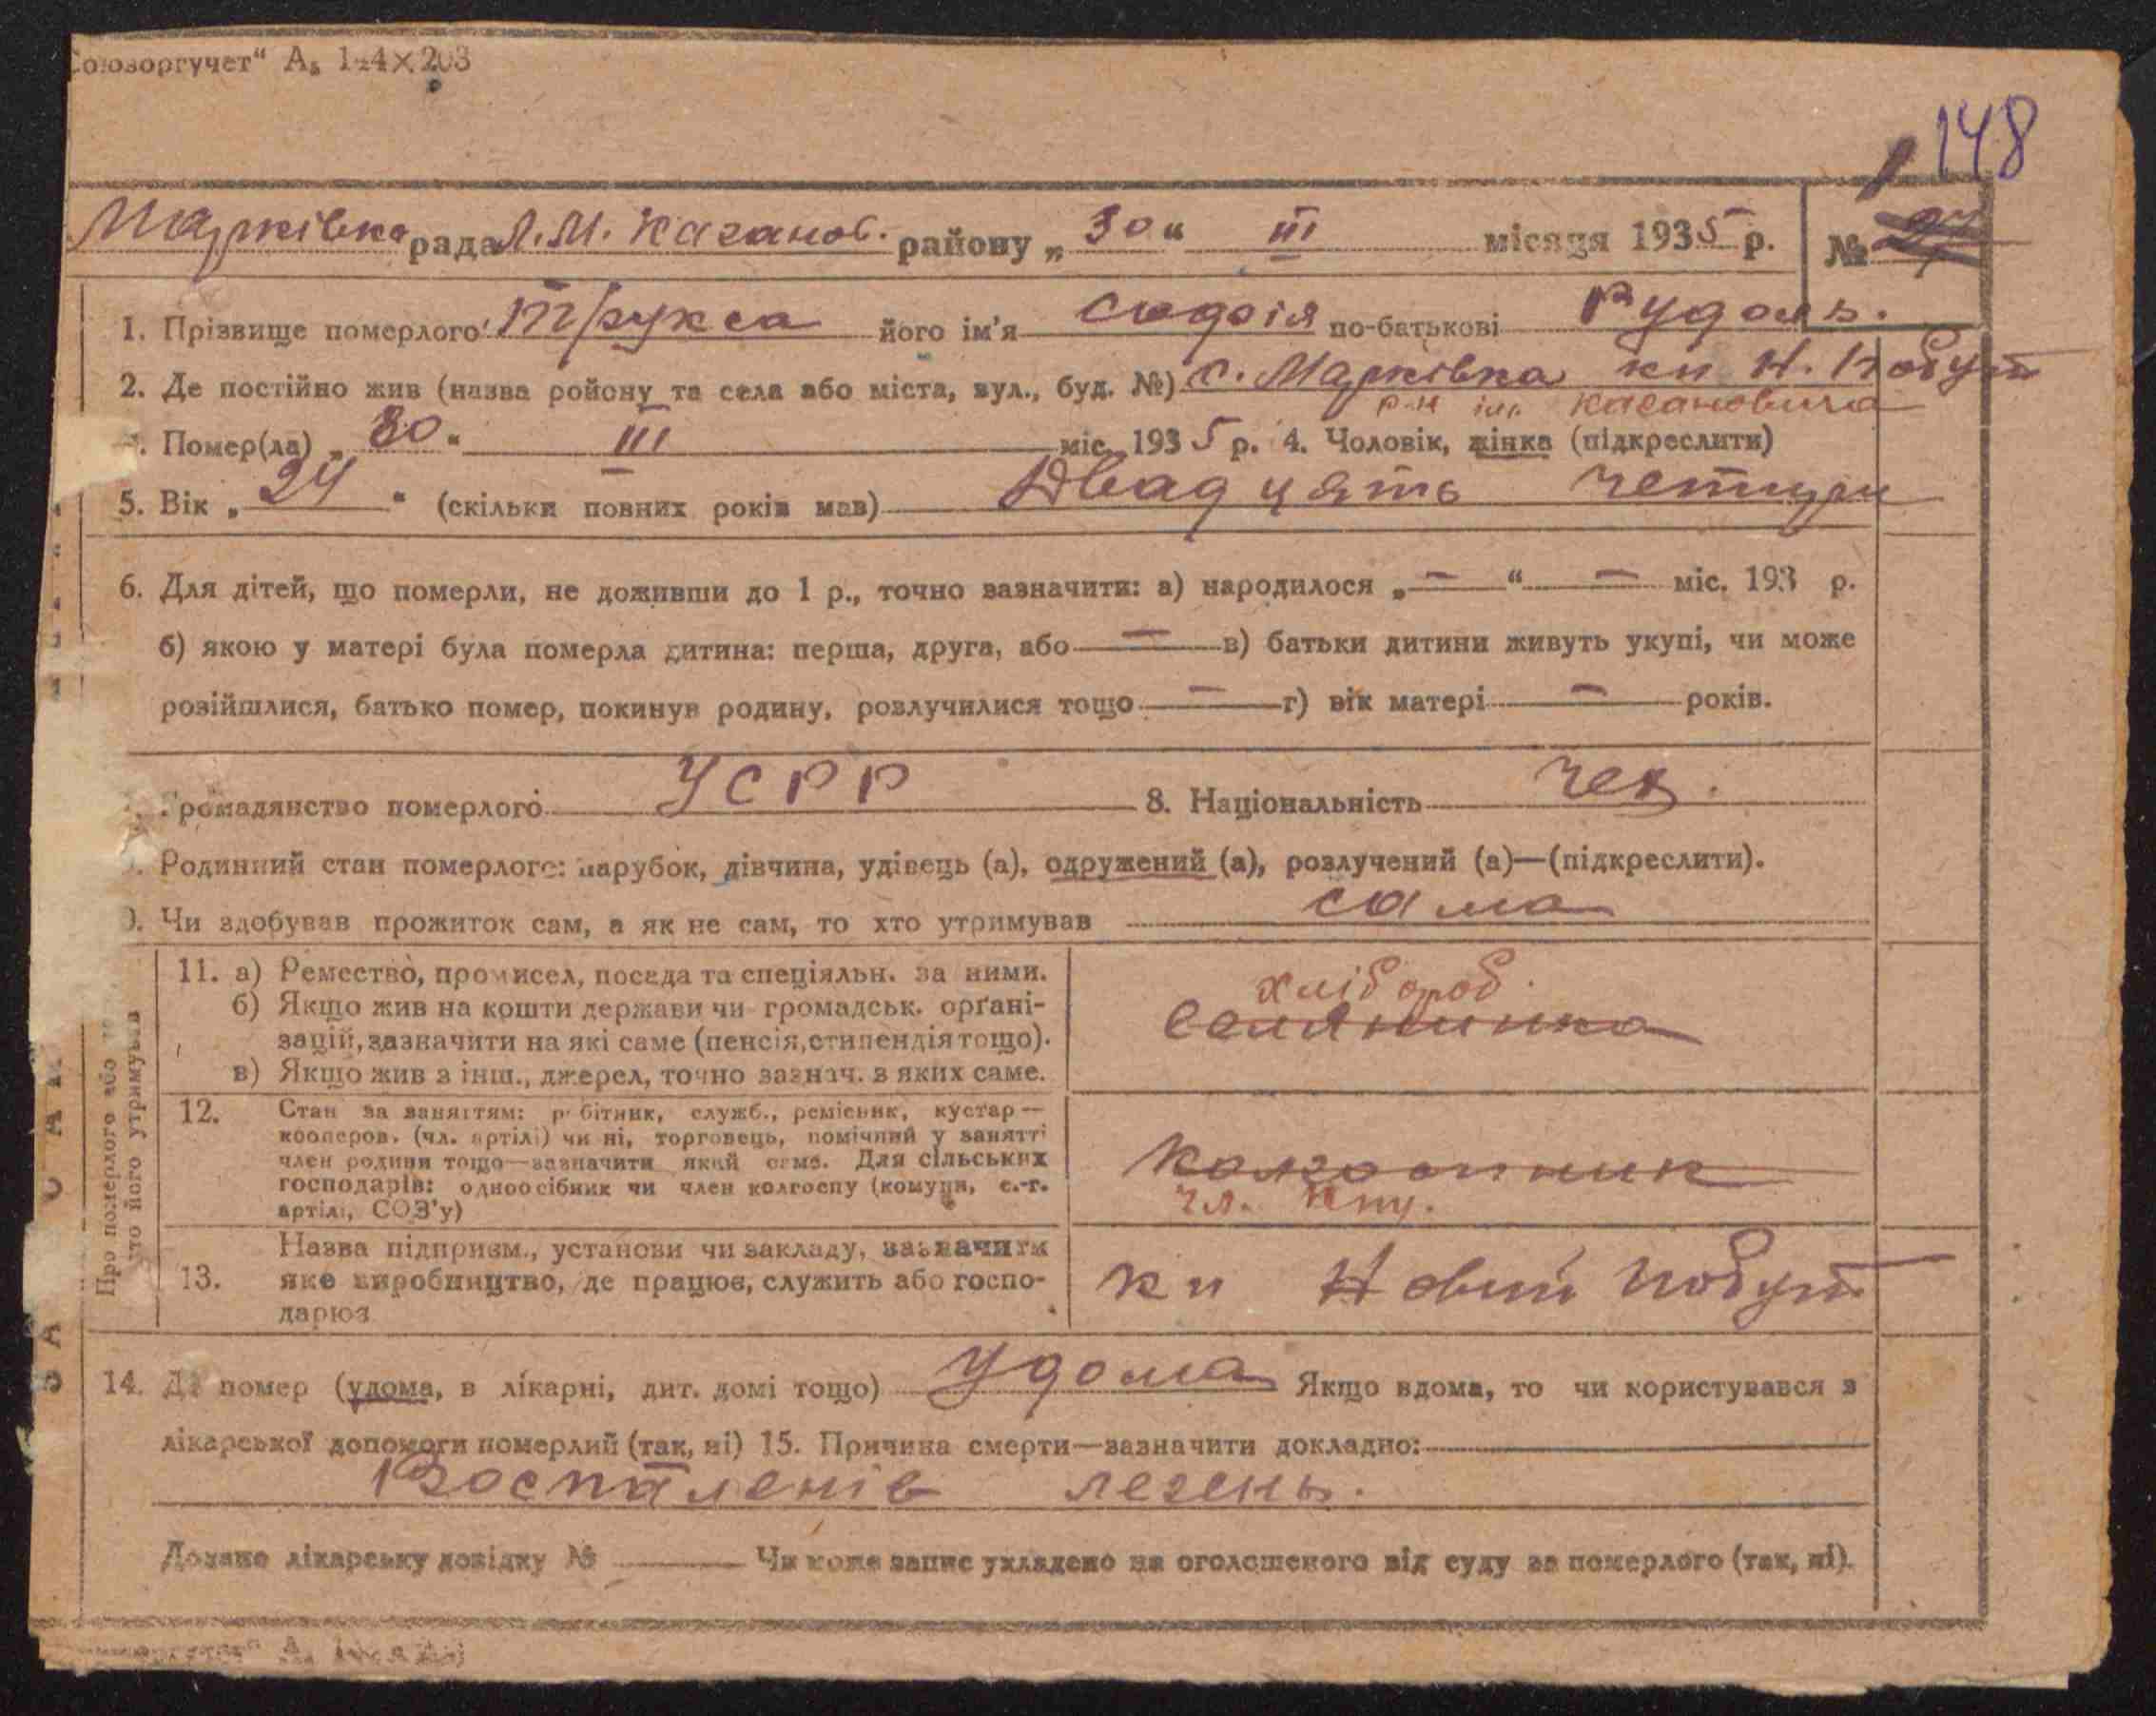 Союзоргучет“ А₅ 144×203
148
Марківка рада Л.М. Каганов. району „30“ III місяця 1935 р. №
1. Прізвище померлого Трукса його ім'я Софія по-батькові Рудоль.
2. Де постійно жив (назва ройону та села або міста, вул., буд. №) с. Марківка кп Н. Побут
р-н ім. Кагановича
Помер(ла) „30“ III міс. 1935 р. 4. Чоловік, жінка (підкреслити)
5. Вік „24“ (скільки повних років мав) Двадцять четири
6. Для дітей, що померли, не доживши до 1 р., точно зазначити: а) народилося „—“ — міс. 193 р.
б) якою у матері була померла дитина: перша, друга, або — в) батьки дитини живуть укупі, чи може
розійшлися, батько помер, покинув родину, розлучилися тощо — г) вік матері — років.
Громадянство померлого УСРР 8. Національність чех.
Родинний стан померлого: парубок, дівчина, удівець (а), одружений (а), розлучений (а)—(підкреслити).
Чи здобував прожиток сам, а як не сам, то хто утримував сама
Про померлого або
хто його утримував
11. а) Ремество, промисел, посада та спеціяльн. за ними.
б) Якщо жив на кошти держави чи громадськ. орґані-
зацій, зазначити на які саме (пенсія, стипендія тощо).
в) Якщо жив з інш., джерел, точно зазнач. з яких саме.
хлібороб.
Селянинка
12. Стан за заняттям: робітник, служб., ремісник, кустар—
кооперов. (чл. артілі) чи ні, торговець, помічний у занятті
член родини тощо—зазначити який саме. Для сільських
господарів: одноосібник чи член колгоспу (комуни, с.-г.
артілі, СОЗ'у)
колгоспник
чл. кпу.
Назва підприєм., установи чи закладу, зазначити
13. яке виробництво, де працює, служить або госпо-
дарює
кп Новий Побут
14. Де помер (удома, в лікарні, дит. домі тощо) Удома Якщо вдома, то чи користувався з
лікарської допомоги померлий (так, ні) 15. Причина смерти—зазначити докладно:
Воспаленів легень.
Додано лікарську довідку № Чи може запис укладено на оголошеного від суду за померлого (так, ні).